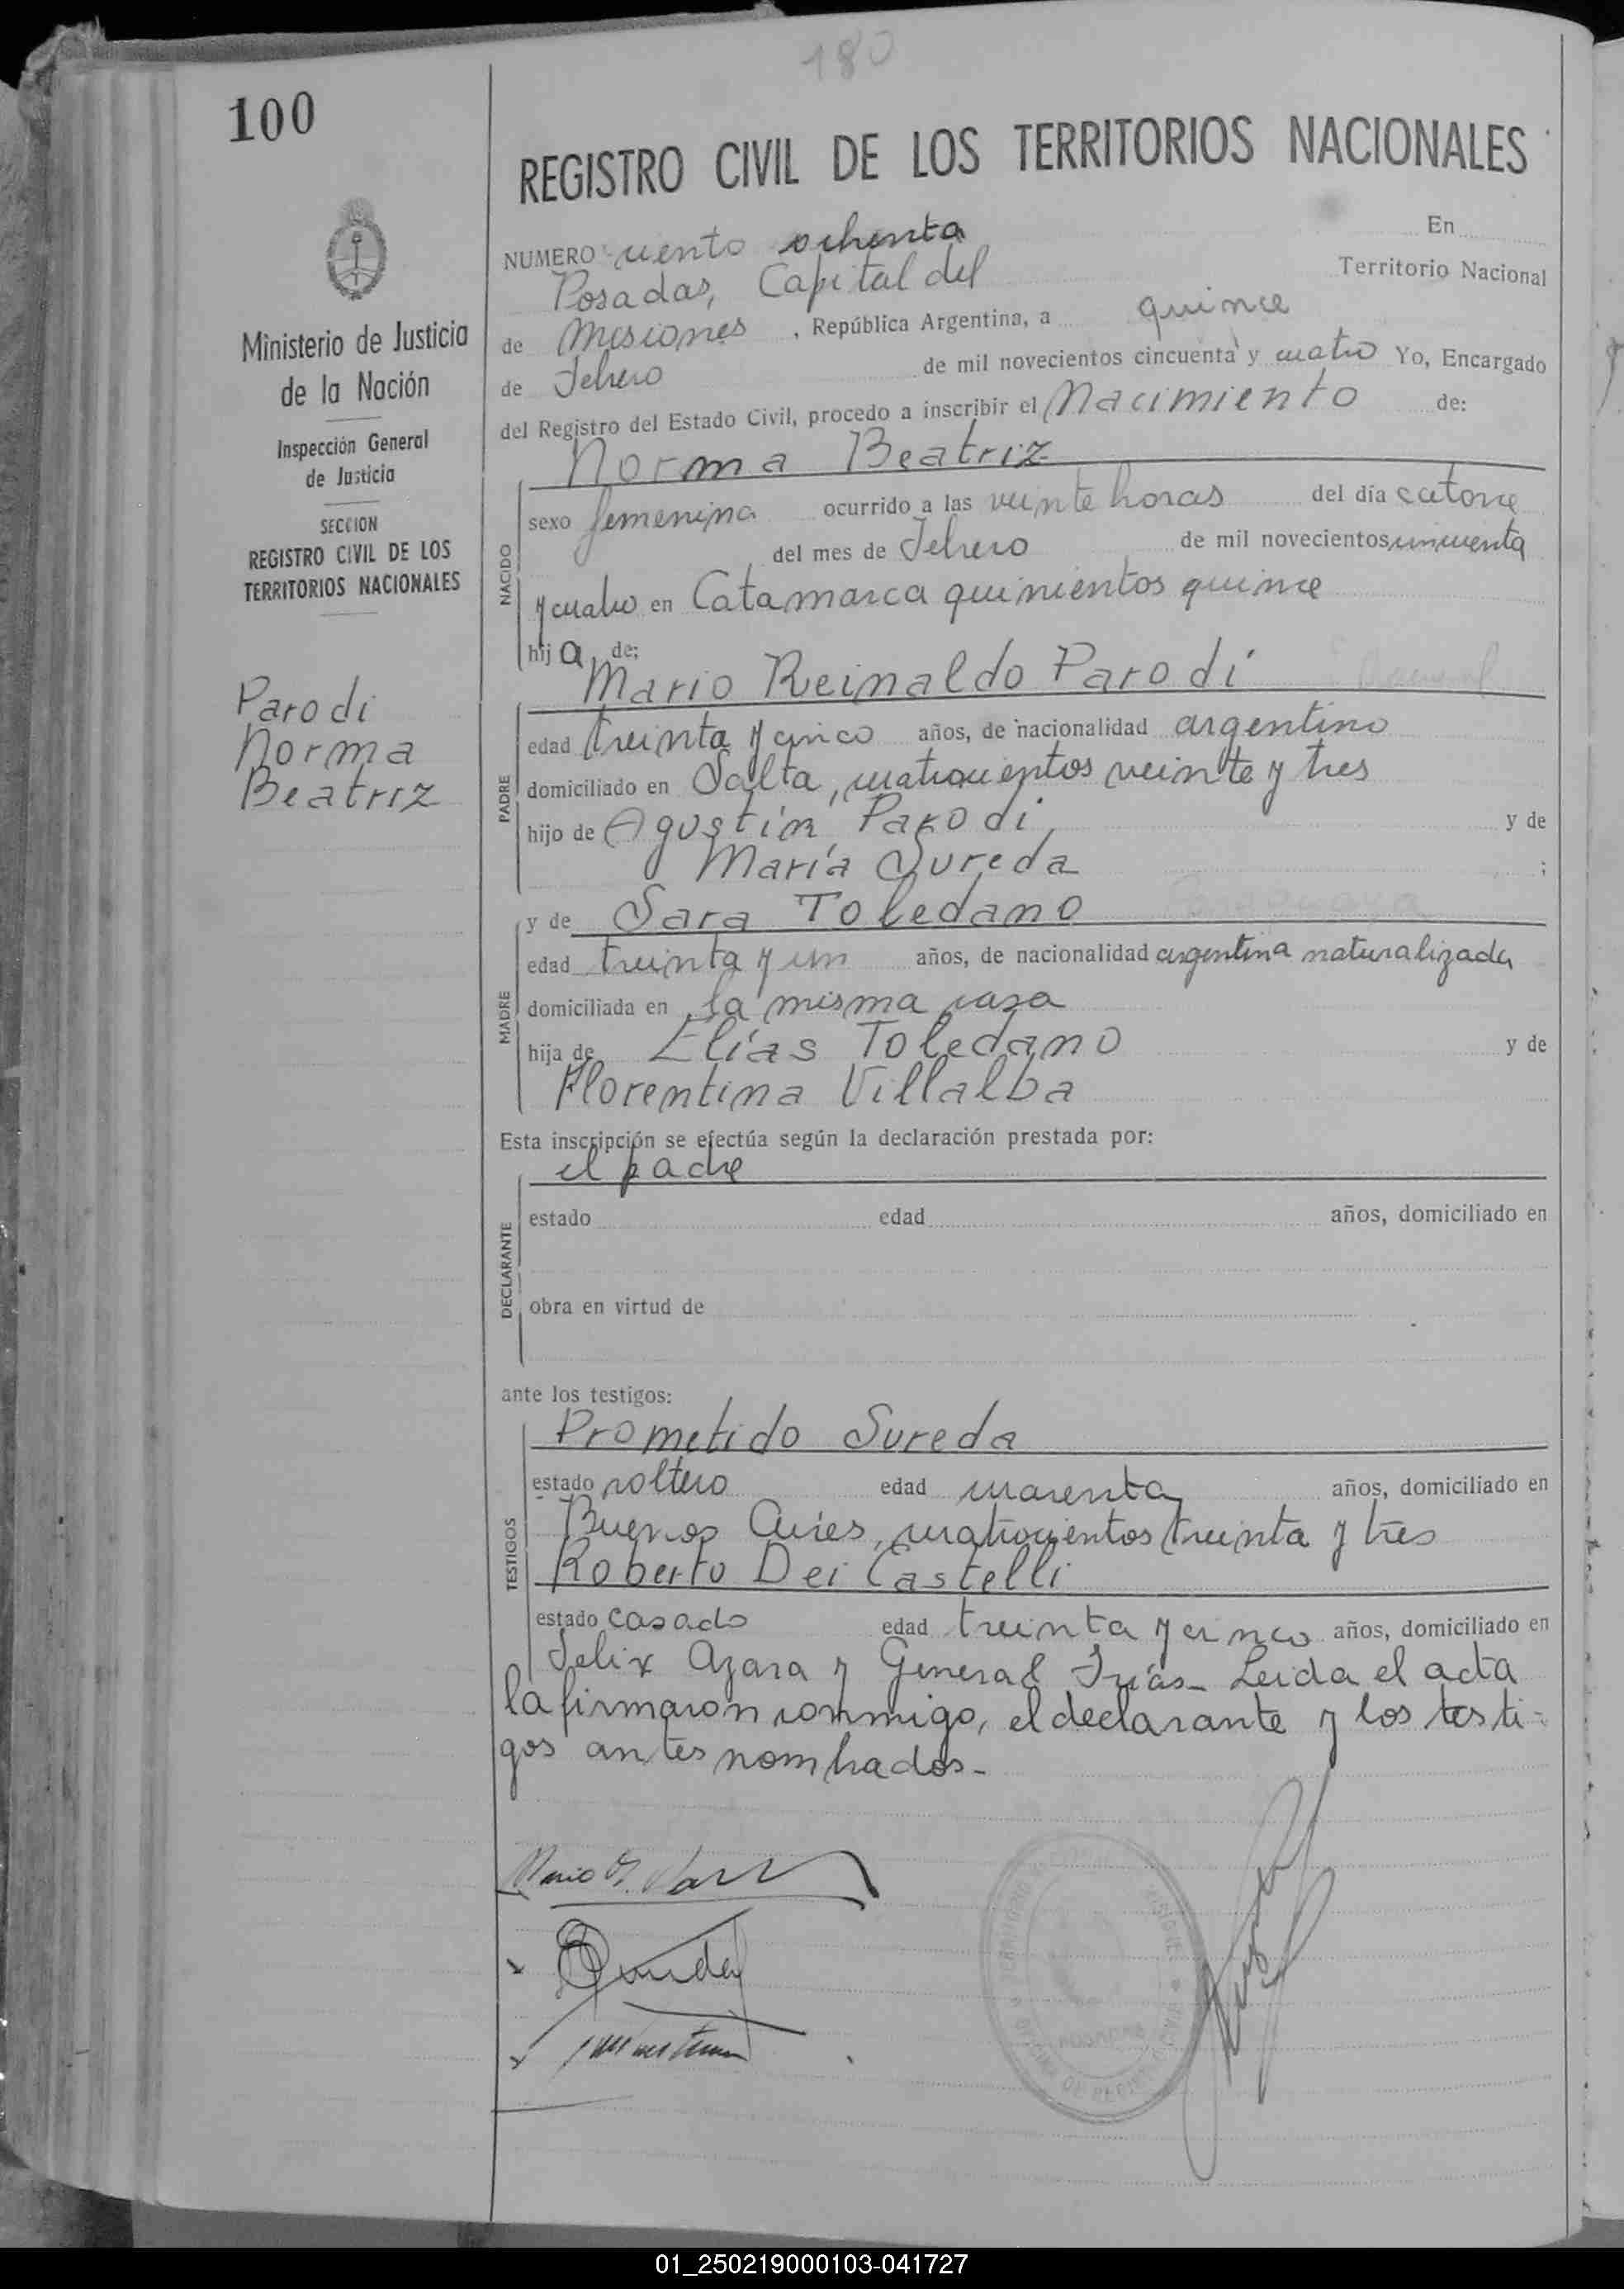 180
100
REGISTRO CIVIL DE LOS TERRITORIOS NACIONALES
Ministerio de Justicia
de la Nación
Inspección General
de Justicia
SECCION
REGISTRO CIVIL DE LOS
TERRITORIOS NACIONALES
Parodi
Norma
Beatriz
NUMERO ciento ochenta En
Posadas, Capital del Territorio Nacional
de Misiones, República Argentina, a quince
de Febrero de mil novecientos cincuenta y cuatro Yo, Encargado
del Registro del Estado Civil, procedo a inscribir el Nacimiento de:
Norma Beatriz
NACIDO
sexo femenina ocurrido a las veinte horas del día catorce
del mes de Febrero de mil novecientos cincuenta
y cuatro en Catamarca quinientos quince
hija de:
Mario Reinaldo Parodi
PADRE
edad treinta y cinco años, de nacionalidad argentino
domiciliado en Salta, cuatrocientos veinte y tres
hijo de Agustín Parodi y de
María Sureda ;
MADRE
y de Sara Toledano Paraguaya
edad treinta y un años, de nacionalidad argentina naturalizada
domiciliada en la misma casa
hija de Elías Toledano y de
Florentina Villalba
Esta inscripción se efectúa según la declaración prestada por:
el padre
DECLARANTE
estado edad años, domiciliado en
obra en virtud de
ante los testigos:
TESTIGOS
Prometido Sureda
estado soltero edad cuarenta años, domiciliado en
Buenos Aires, cuatrocientos treinta y tres
Roberto Dei Castelli
estado casado edad treinta y cinco años, domiciliado en
Felix Azara y General Frías_ Leida el acta
la firmaron conmigo, el declarante y los testi-
gos antes nombrados_
01_250219000103-041727